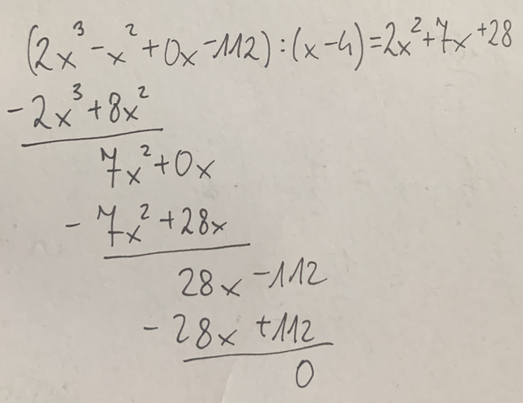 (2x³-x²+0x-112):(x-4)=2x²+7x+28
-2x³+8x²
7x²+0x
-7x²+28x
28x-112
-28x+112
0